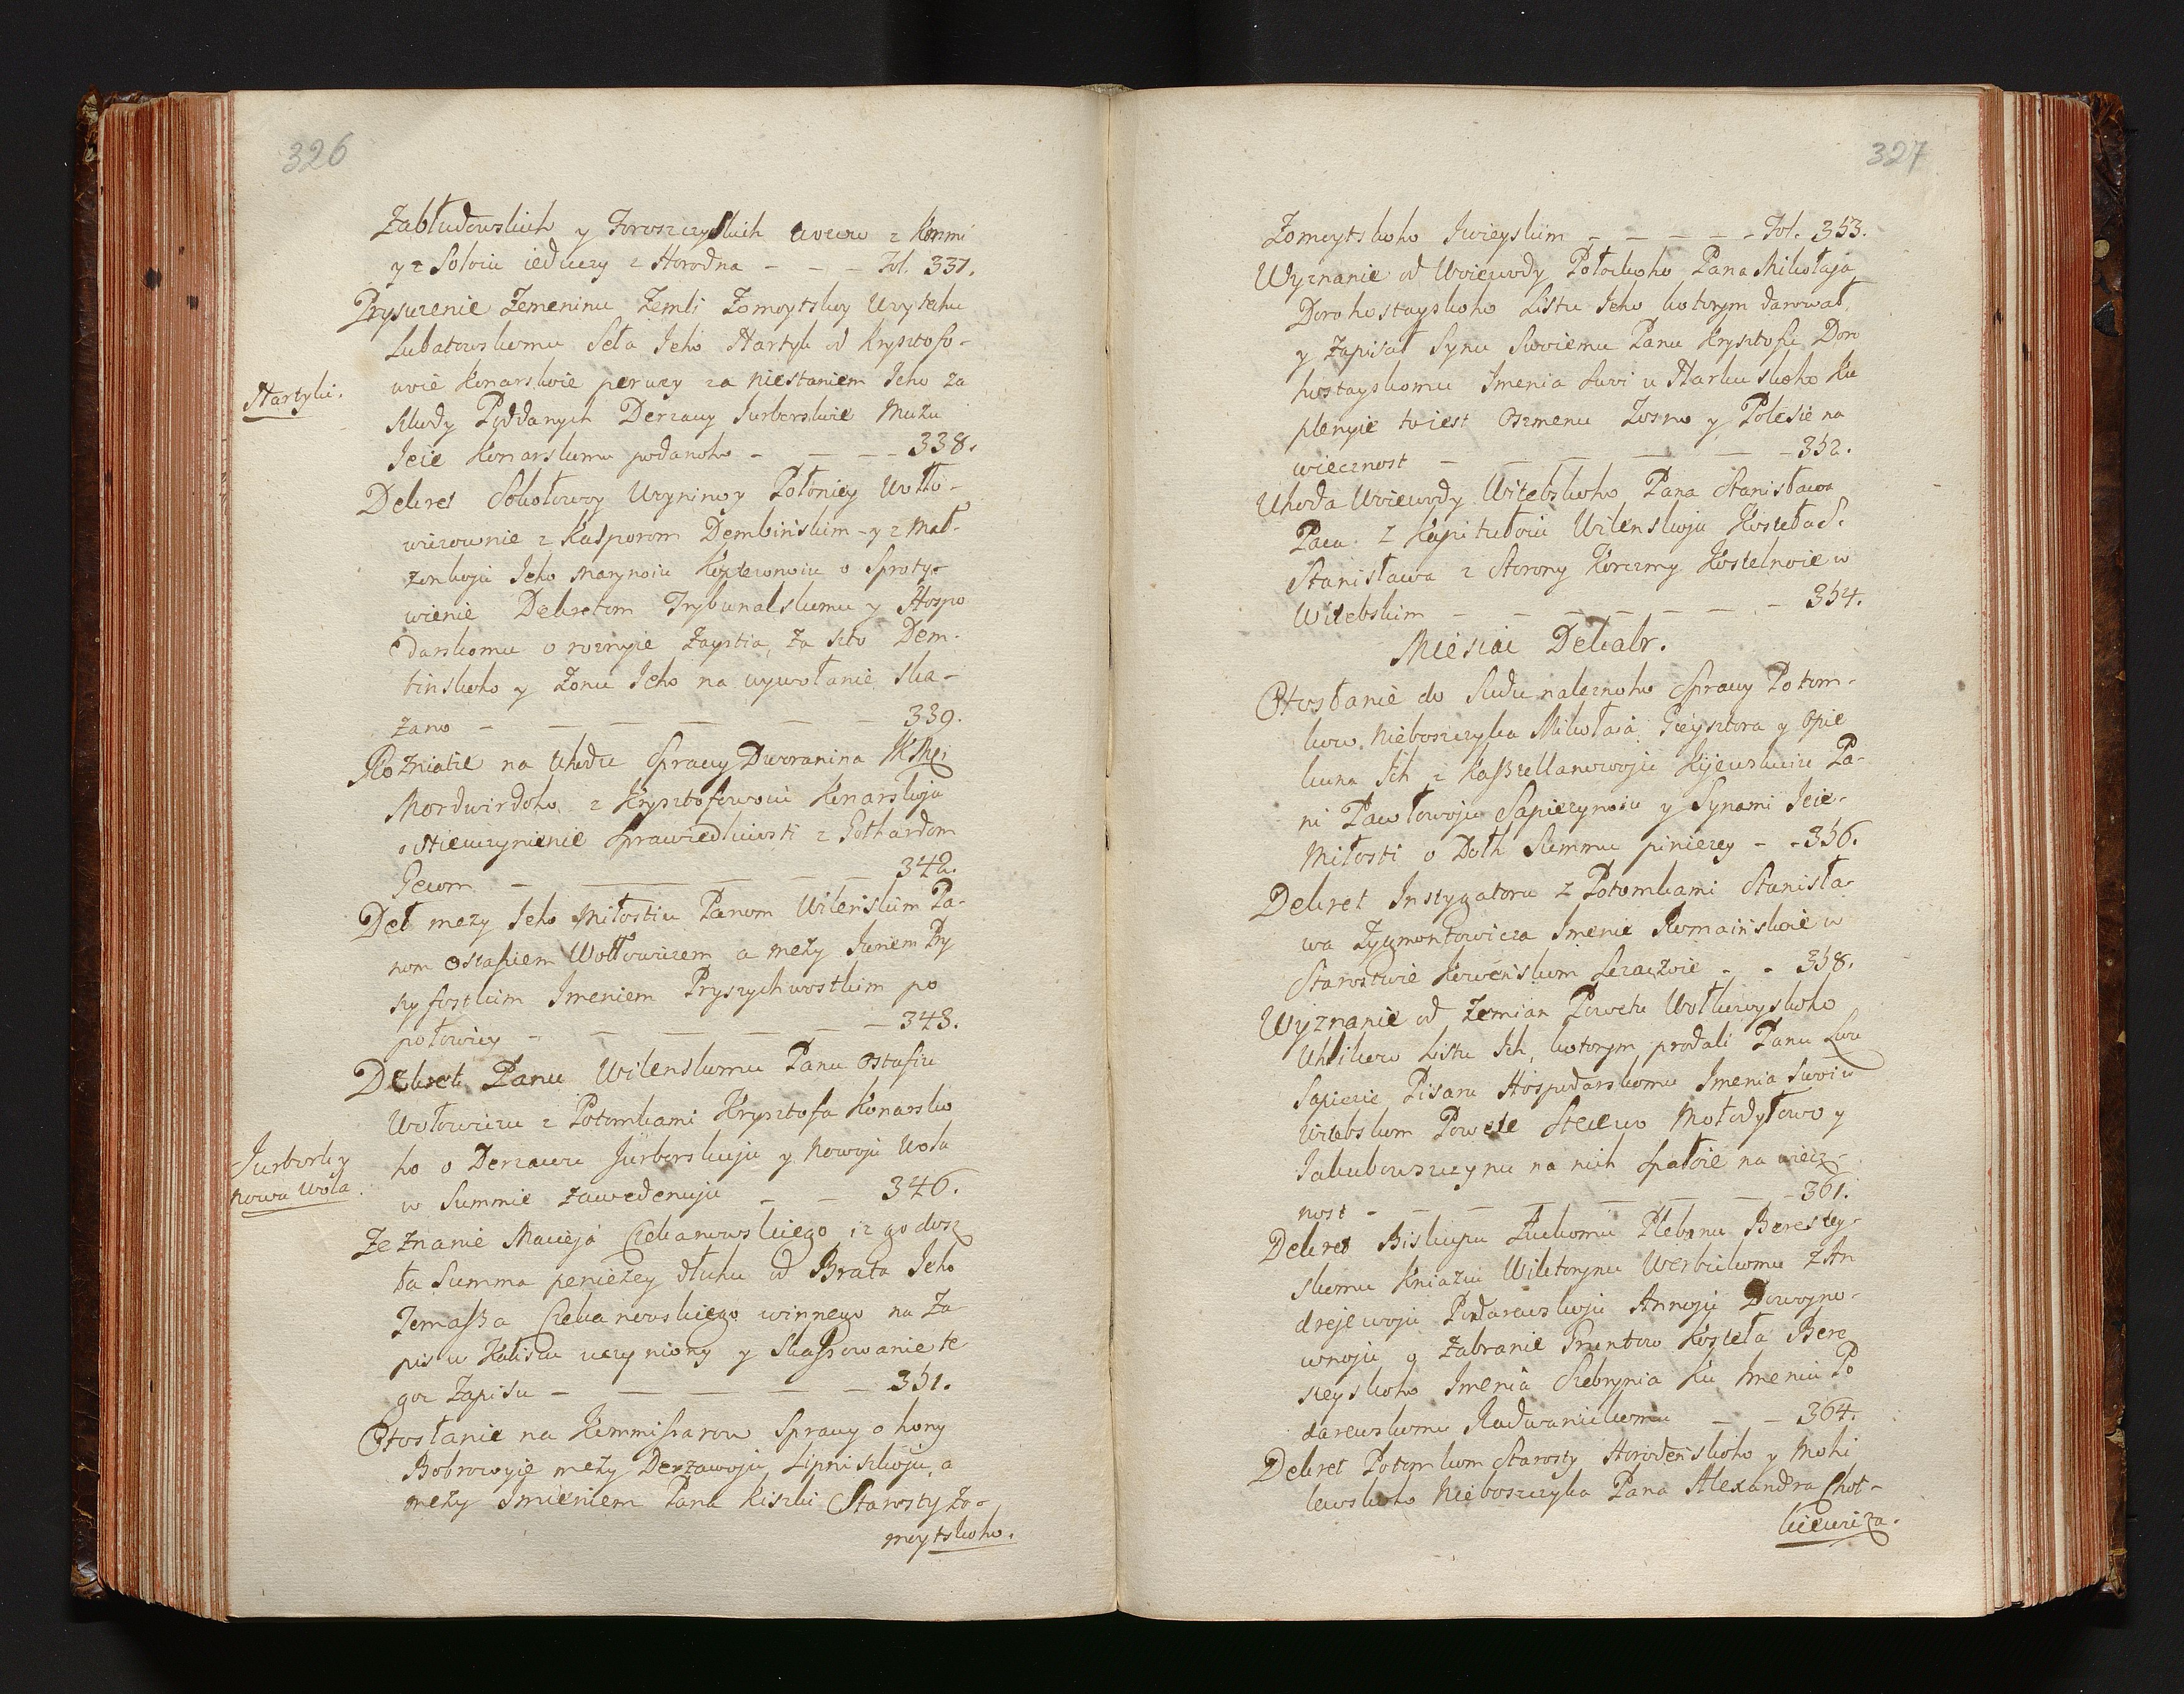 326
Zabłudowskich y Foroszczyskich
y z Soloiu ieduczy z Horodna - - - Fol. 337.
Prysuzenie Zemeninu Zemli Zomoytskoy
Lubatowskomu Seła Jeho Hartyk od Krysztofo-
Hartyki.
woie Konarskoie perwey za niestaniem Jeho za
szkody Poddanych Derzawy Jurborskoie Mużu
Jeie Konarskomu podanoho - - - - 338.
Dekret Sokołowoy
z Kasporom Dembińskim - y z Mał-
żonkoju Jeho Marynoiu o Sproty-
wienie Dekretom Trybunalskomu y Hospo
darskomu o roznyie Zaystia, za szto Dem-
binskoho y Żonu Jeho na wywołanie ska-
zano - - - - - - 339.
na Uhodu Sprawy Dworanina JKMci
Mordwirdoho z Krysztofowoiu Konarskoju
o Nieuczynienie Sprawiedliwosti z Gothardom
- - - - - 342.
Deł mezy Jeho Miłostiu Panom Wilenskim Pa-
nom Ostafiem Wołłowiczem a mezy
Imeniem po
połowicy - - - - - - 343.
Dekret Panu Wilenskomu Panu Ostafiu
Wołowiczu z Potomkami Krysztofa Konarsko
Jurbork y
ho o Derzawu Jurborskuju y Nowoju Wolu
Nowa Wola.
w Summie zawedenuju - - 346.
Zeznanie Macieja Ciekanowskiego iz go dosz
ła Summa penieżey dłuhu od Brata Jeho
Tomasza Ciekanowskiego winnego na Za
pis w Kaliszu uczyniony y Skassowanie te
goż Zapisu - - - - - 351.
Otosłanie na Kommissarow Sprawy o hony
Bobrowyie mezy Derzawoju Lipniszkoju, a
mezy Imieniem Pana Kiszki Starosty Żo-
moytskoho.
327
Żomoytskoho Iwieyskim - - - - - Fol. 353.
Wyznanie od Woiewody Połockoho Pana Mikołaja
Dorohostayskoho Listu Jeho kotorym darował
y zapisał Synu Swoiemu Panu Krysztofu Doro
hostayskomu Imenia
plenyie to iest Oszmenu y Polesie na
wiecznost - - - - - - 352.
Uhoda Woiewody Witebskoho Pana Stanisława
Paca. z Kapitułoiu Wilenskoju Kosteła S.
Stanisława z Storony Korczmy Kostelnoie w
Witebskim - - - - - - 354.
Miesiac Dekabr.
Otosłanie do Sudu naleznoho Sprawy Potom-
kow Nieboszczyka Mikołaia Gieysztora y Opie
kuna Ich z Kasztellanowoju Kijewskoiu Pa-
ni Pawłowoju Sapieżynoiu y Synami Jeie-
Miłosti o Dołh Summu pinieżey - - 356.
Dekret Instygatoru z Potomkami Stanisła-
wa Zygmontowicza Imenie Romainskoie w
Starostwie Kowenskom Leżaczoie - - 358.
Wyznanie od Zemian Powetu Wołkowyskoho
Uhlikow Listu Ich, kotorym prodali Panu Lwu
Sapieże Pisaru Hospodarskomu Imenia Swoi w
Witebskom Powete Steewo Mołodyłowo y
Jakubowszczynu na nich Spałoie na wiecz-
nost - - - - - - 361.
Dekret Biskupu Łuckomu Plebanu Berestey-
skomu Kniaziu Wiktorynu Werbickomu z An
drejewoju Podarewskoju Annoju Dowoyno-
wnoju o zabranie Gruntow Kosteła Bere
steyskoho Imenia Szebrynia Ku Imeniu Po
darewskomu Radwanickomu - - 364.
Dekret Potomkom Starosty Horodeńskoho y Mohi
lewskoho Nieboszczyka Pana Alexandra Chot-
kiewicza.